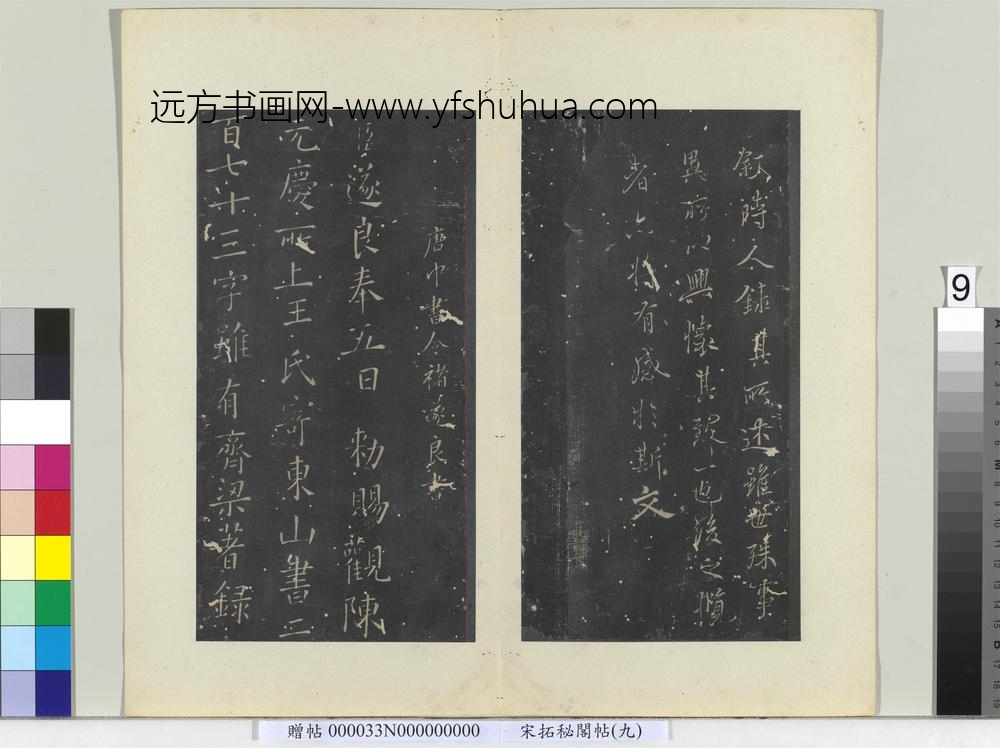 远方书画网-www.yfshuhua.com
叙時人錄其所述雖世殊事
異所以興懷其致一也後之攬
者亦將有感於斯文
唐中書令褚遂良書
臣遂良奉五日勑賜觀陳
元慶所上王氏寄東山書二
百七十三字雖有齊梁著録
9
贈帖 000033N000000000 宋拓秘閣帖(九)